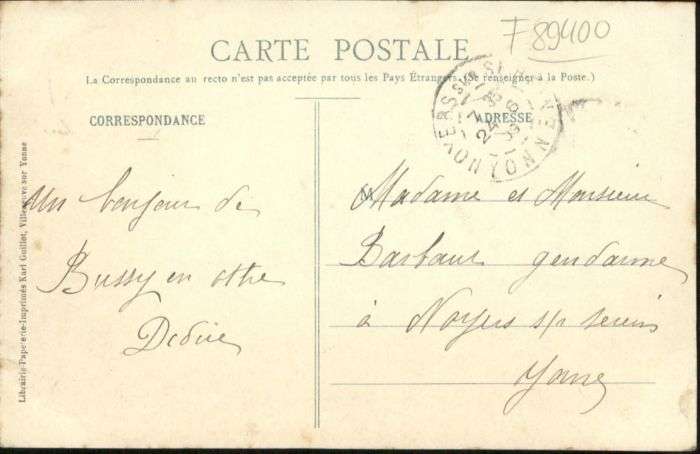 F 89400
CARTE POSTALE
La Correspondance au recto n'est pas acceptée par tous les Pays Étrangers. (Se renseigner à la Poste.)
CORRESPONDANCE
ADRESSE
NOYERS SUR SEREIN
YONNE
Un bonjour de
Bussy en othe
Madame et Monsieur
gendarme
à Noyers s/s serein
Yonne
Librairie-Papeterie-Imprimés Karl Guillot, Villeneuve sur Yonne